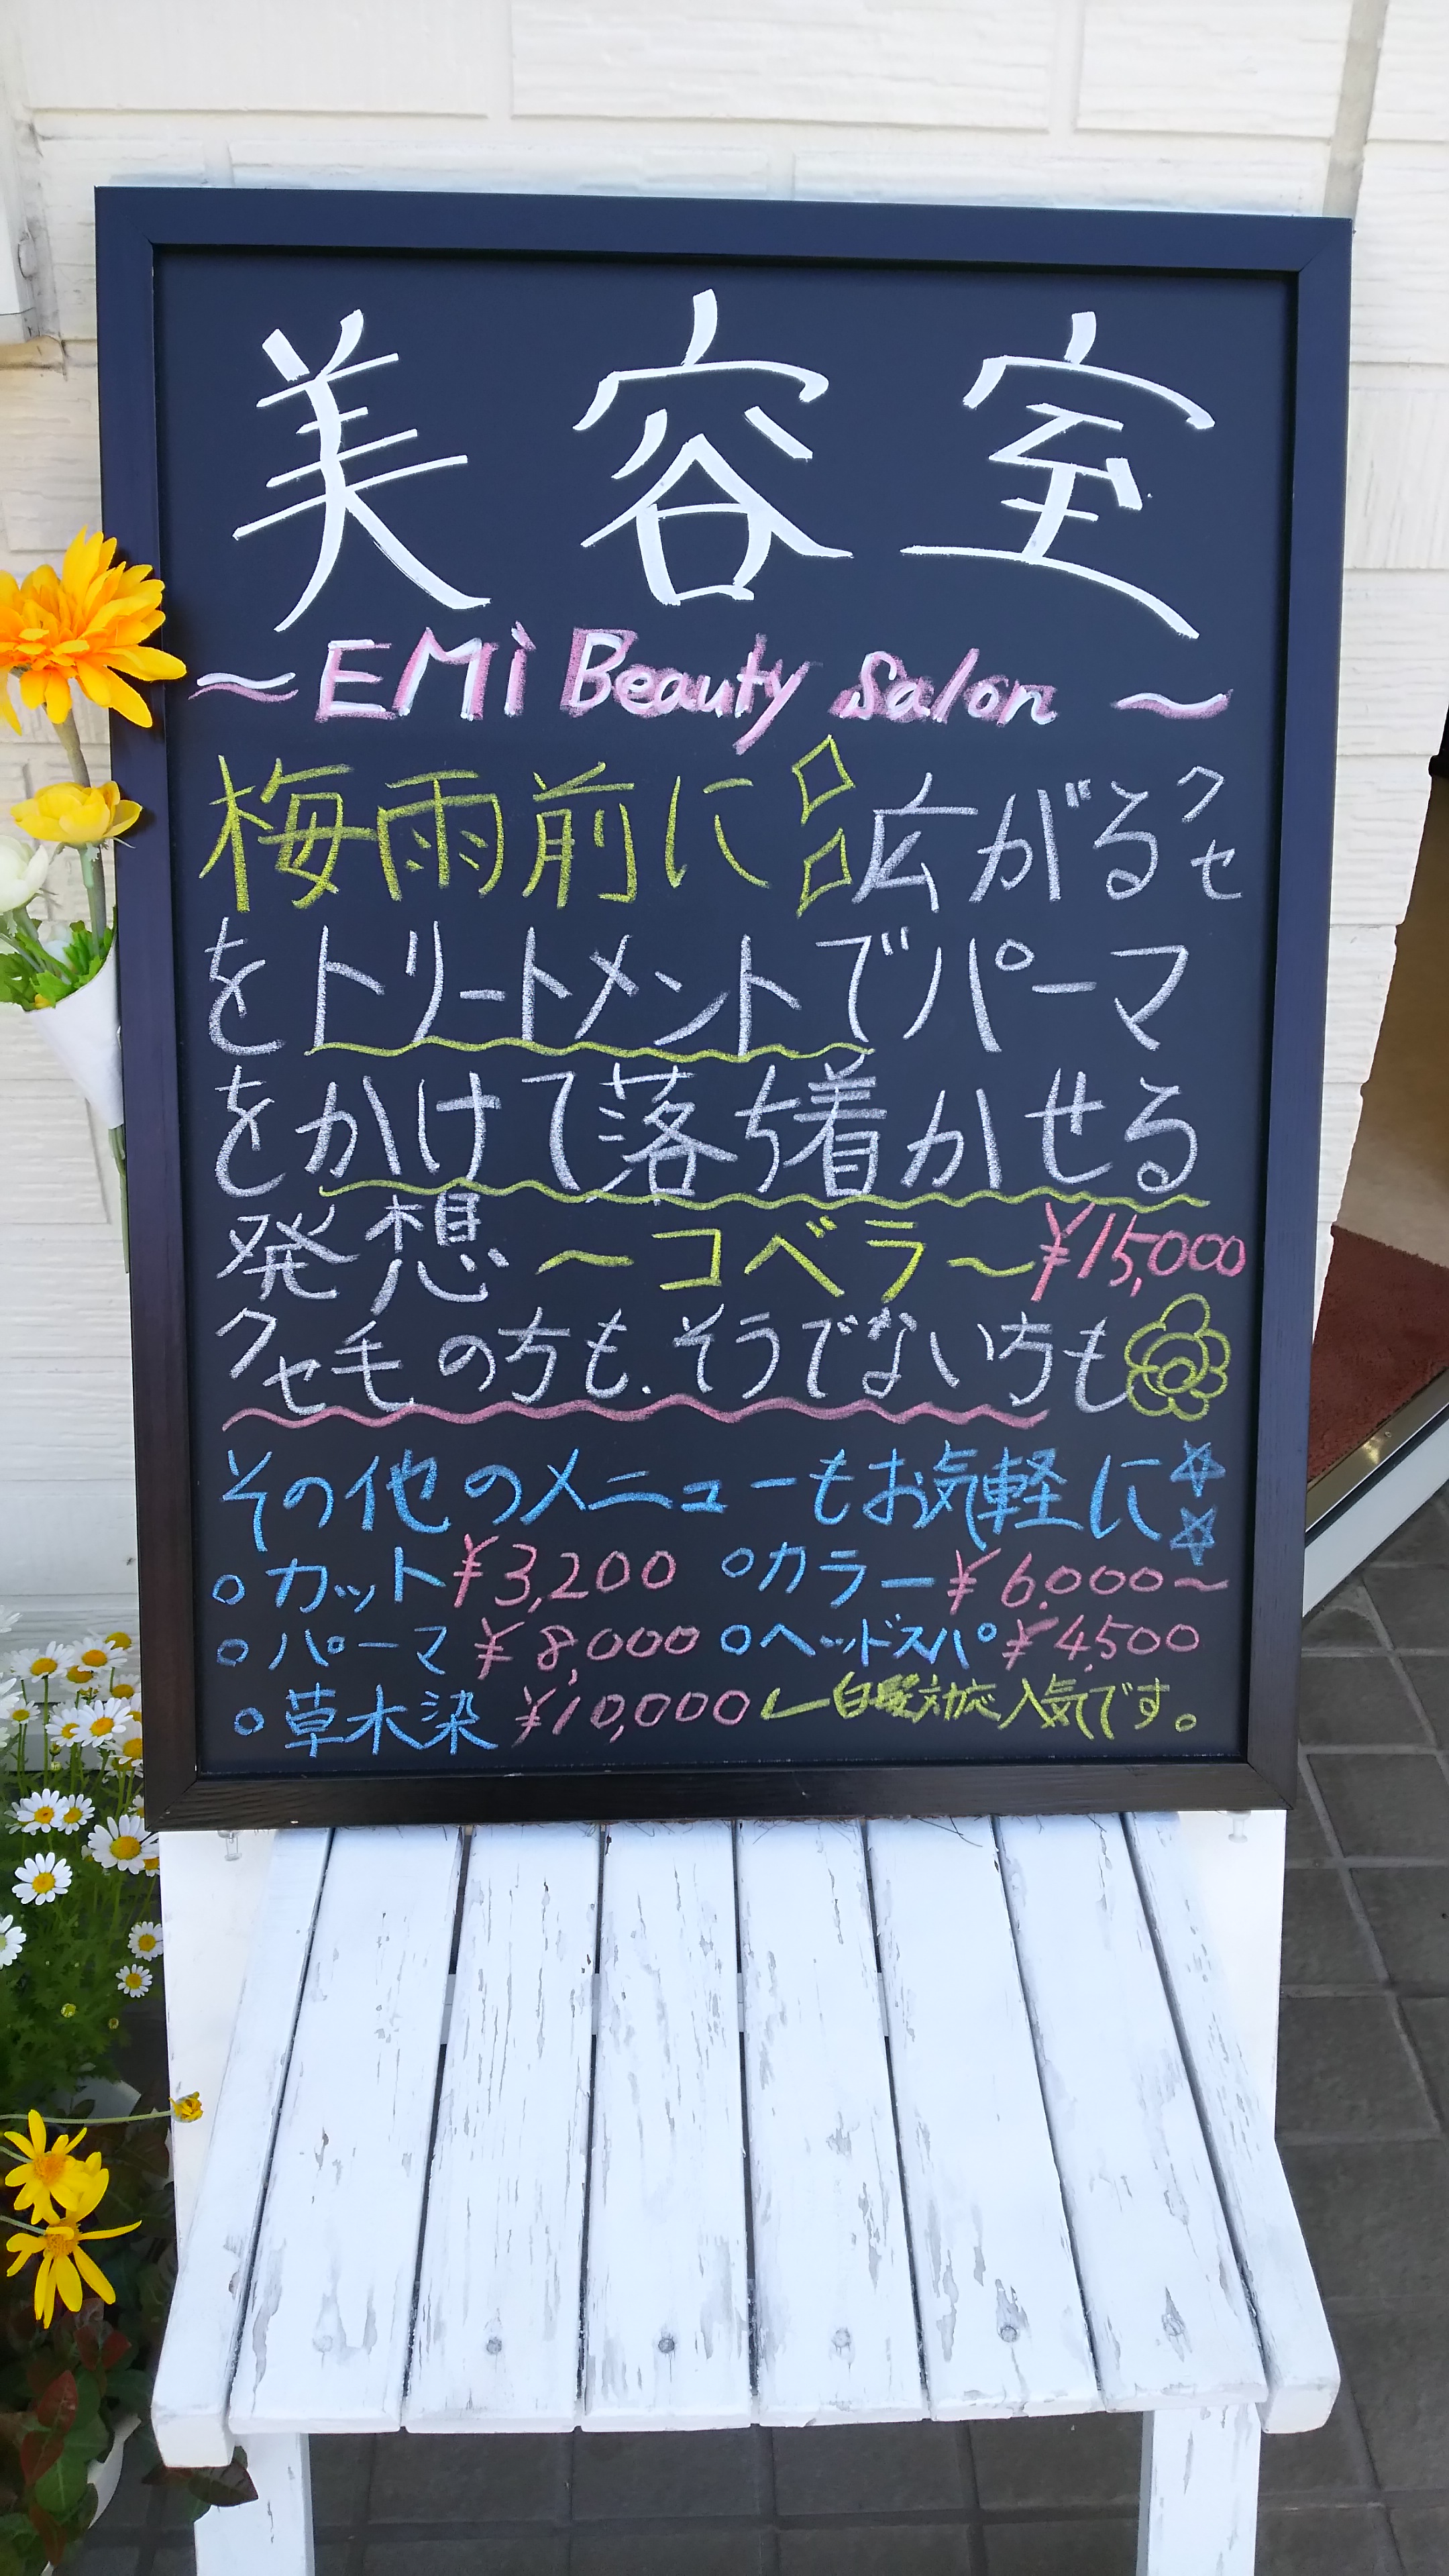 美容室
～EMi Beauty Salon～
梅雨前に広がるクセ
をトリートメントでパーマ
をかけて落ち着かせる
発想～コベラ～¥15,000
クセ毛の方も.そうでない方も
その他のメニューもお気軽に☆☆
○カット¥3,200 ○カラー¥6.000～
○パーマ¥8,000 ○ヘッドスパ¥4.500
○草木染 ¥10,000←白髪対応人気です。